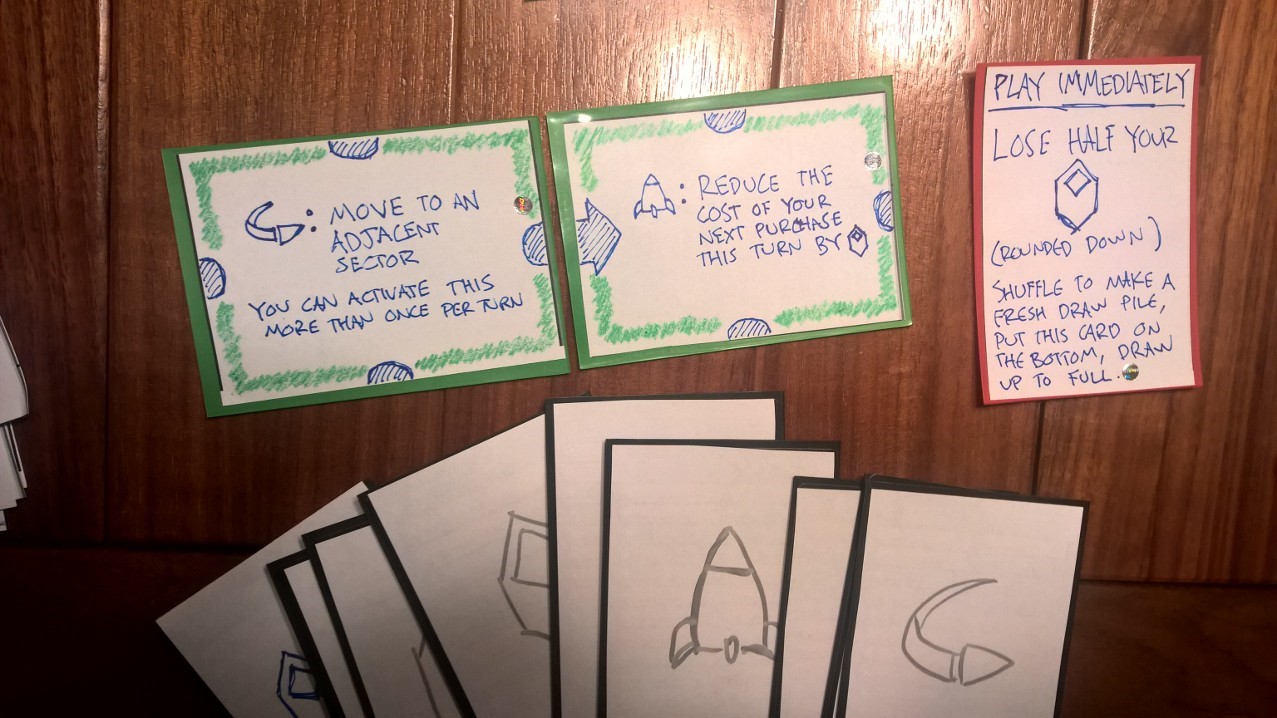 : MOVE TO AN
ADJACENT
SECTOR
YOU CAN ACTIVATE THIS
MORE THAN ONCE PER TURN
: REDUCE THE
COST OF YOUR
NEXT PURCHASE
THIS TURN BY
PLAY IMMEDIATELY
LOSE HALF YOUR
(ROUNDED DOWN)
SHUFFLE TO MAKE A
FRESH DRAW PILE,
PUT THIS CARD ON
THE BOTTOM, DRAW
UP TO FULL.